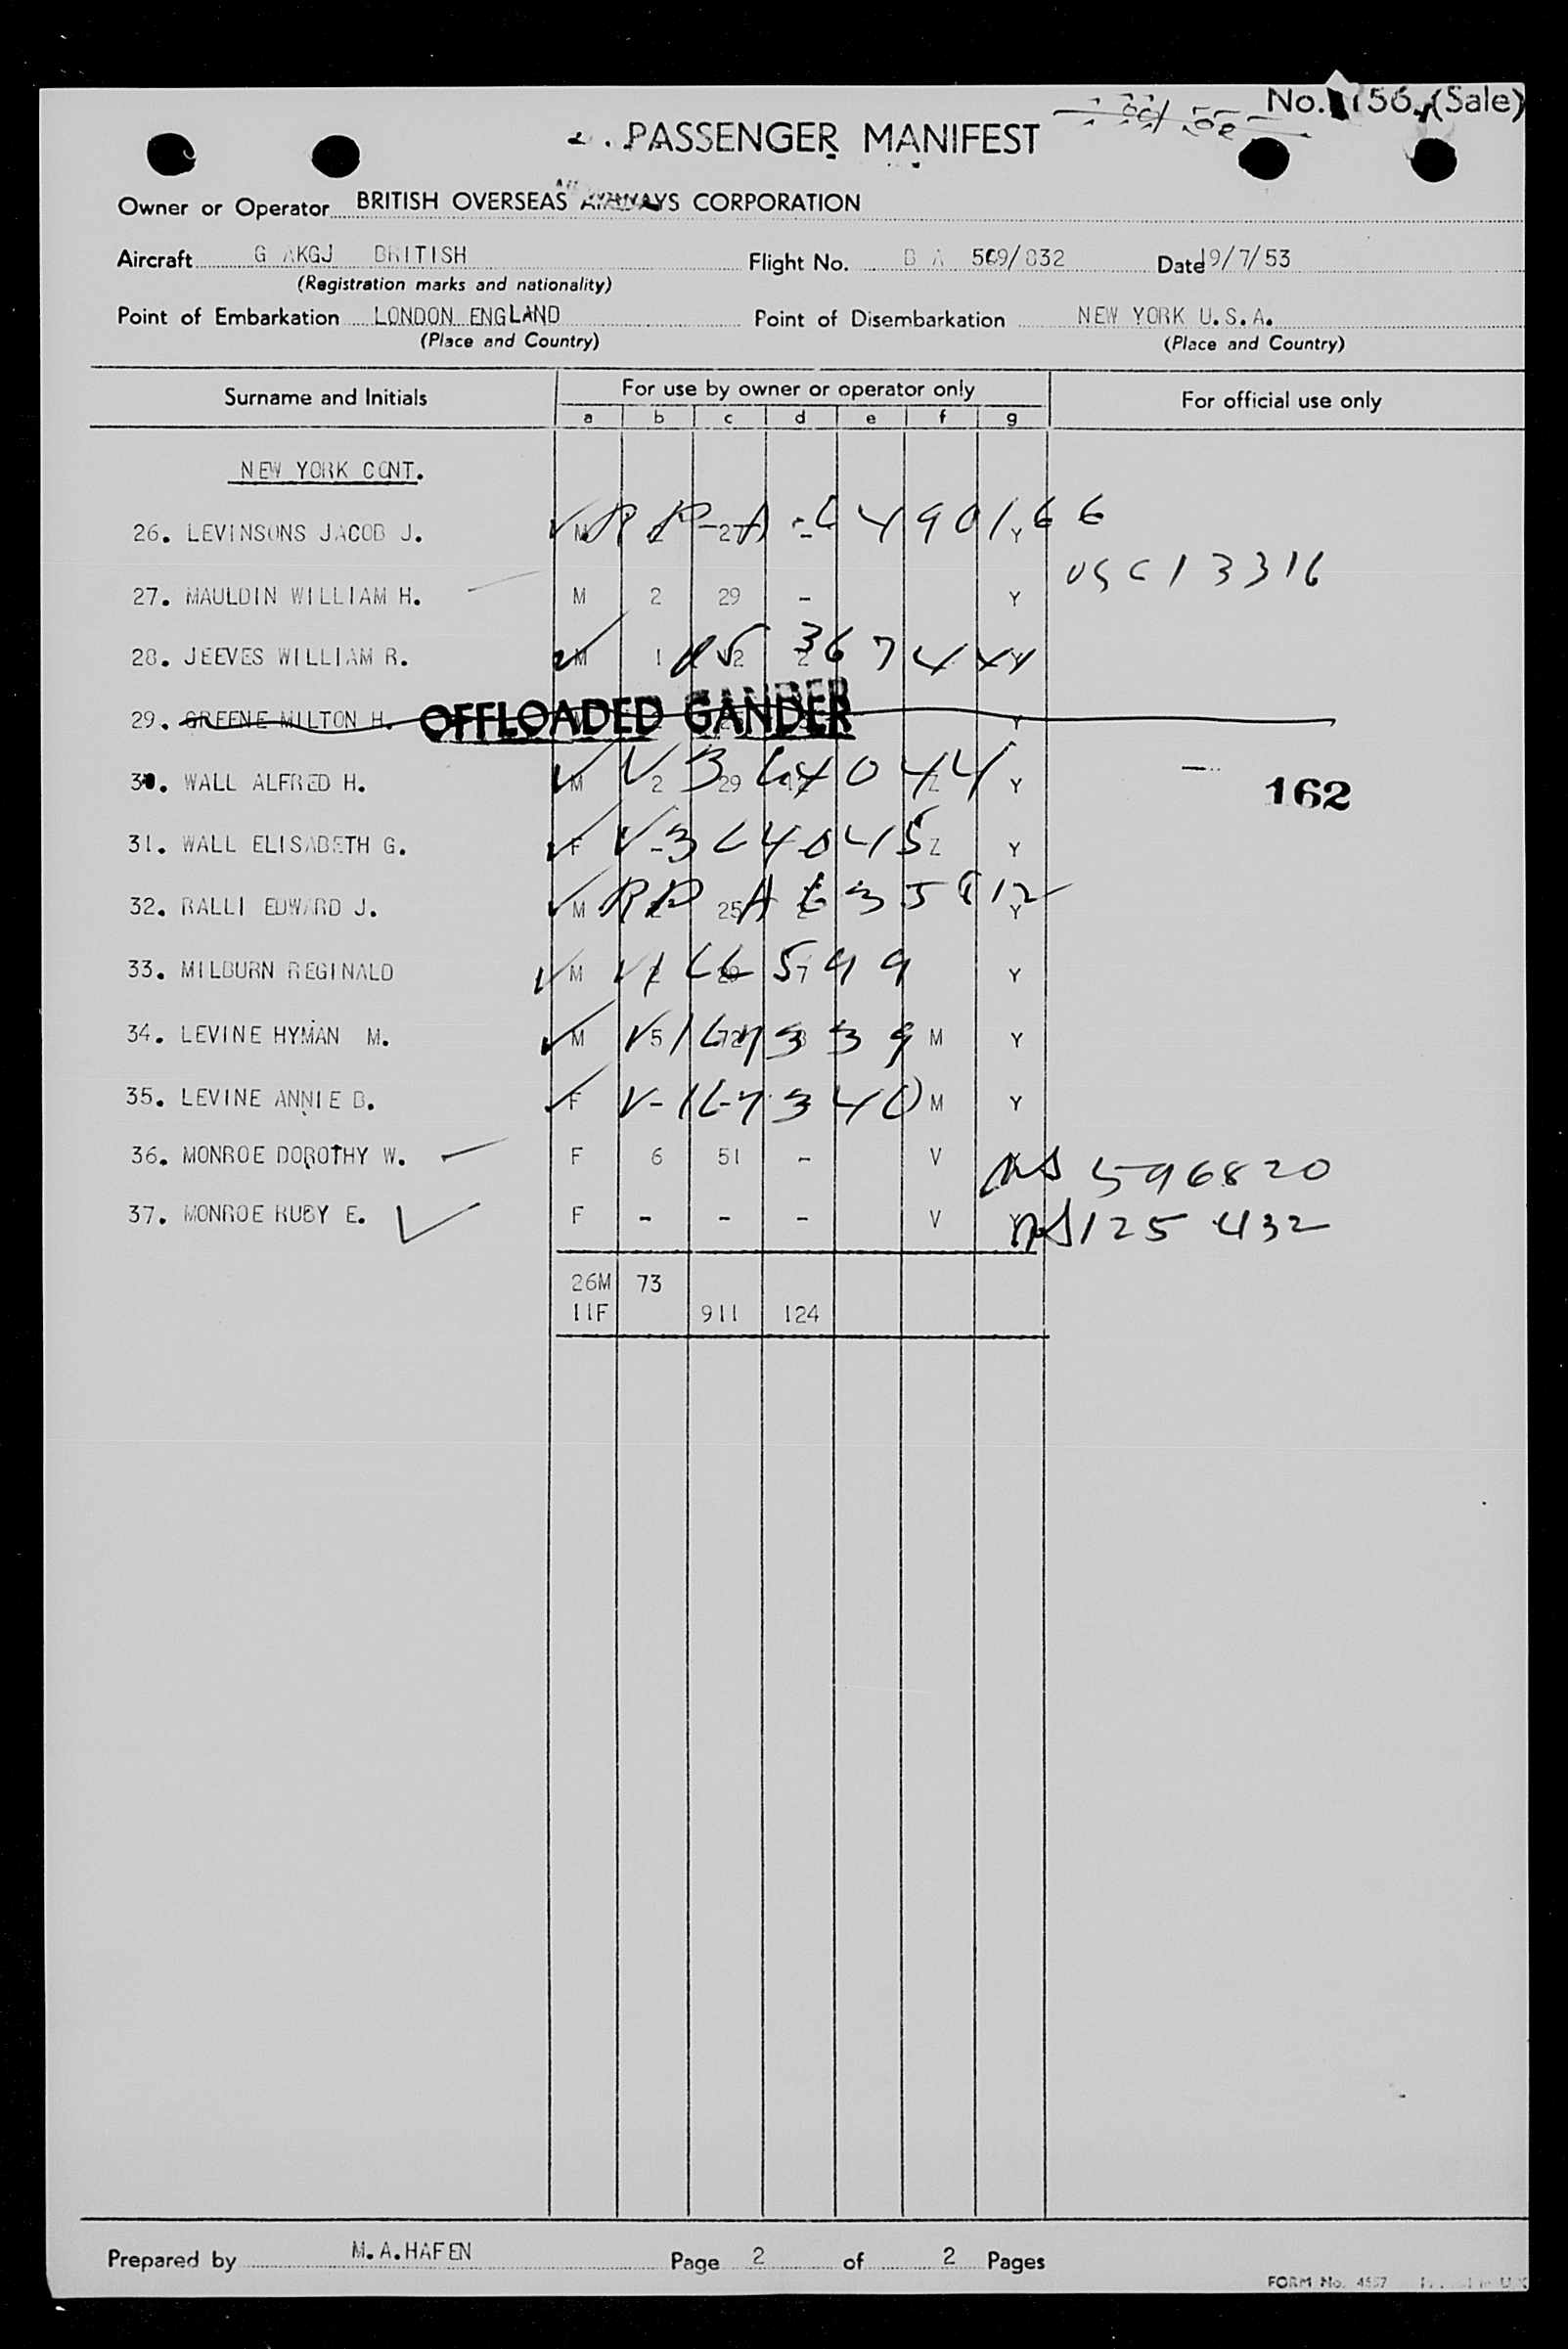 No. 756. (Sale)
PASSENGER MANIFEST
Owner or Operator BRITISH OVERSEAS AIRWAYS CORPORATION
Aircraft G AKGJ BRITISH Flight No. B A 569/832 Date 9/7/53
(Registration marks and nationality)
Point of Embarkation LONDON ENGLAND Point of Disembarkation NEW YORK U.S.A.
(Place and Country) (Place and Country)
Surname and Initials For use by owner or operator only For official use only
a b c d e f g
NEW YORK CONT.
26. LEVINSONS JACOB J. M RP-A - 6490166 Y
USC 13316
27. MAULDIN WILLIAM H. M 2 29 - Y
28. JEEVES WILLIAM R. M 1 367444
29. GREENE MILTON H. OFFLOADED GANDER Y
30. WALL ALFRED H. M 2 V 364044 29 Z Y 162
31. WALL ELISABETH G. F V-364045 Z Y
32. RALLI EDWARD J. M RP 25 A Y
33. MILBURN REGINALD M V 166599 Y
34. LEVINE HYMAN M. M 5 V 167339 M Y
35. LEVINE ANNIE B. F V-167340 M Y
36. MONROE DOROTHY W. F 6 51 - V NS 596820
37. MONROE RUBY E. F - - - V NS 125432
26M 73
11F 911 124
Prepared by M.A.HAFEN Page 2 of 2 Pages
FORM No.